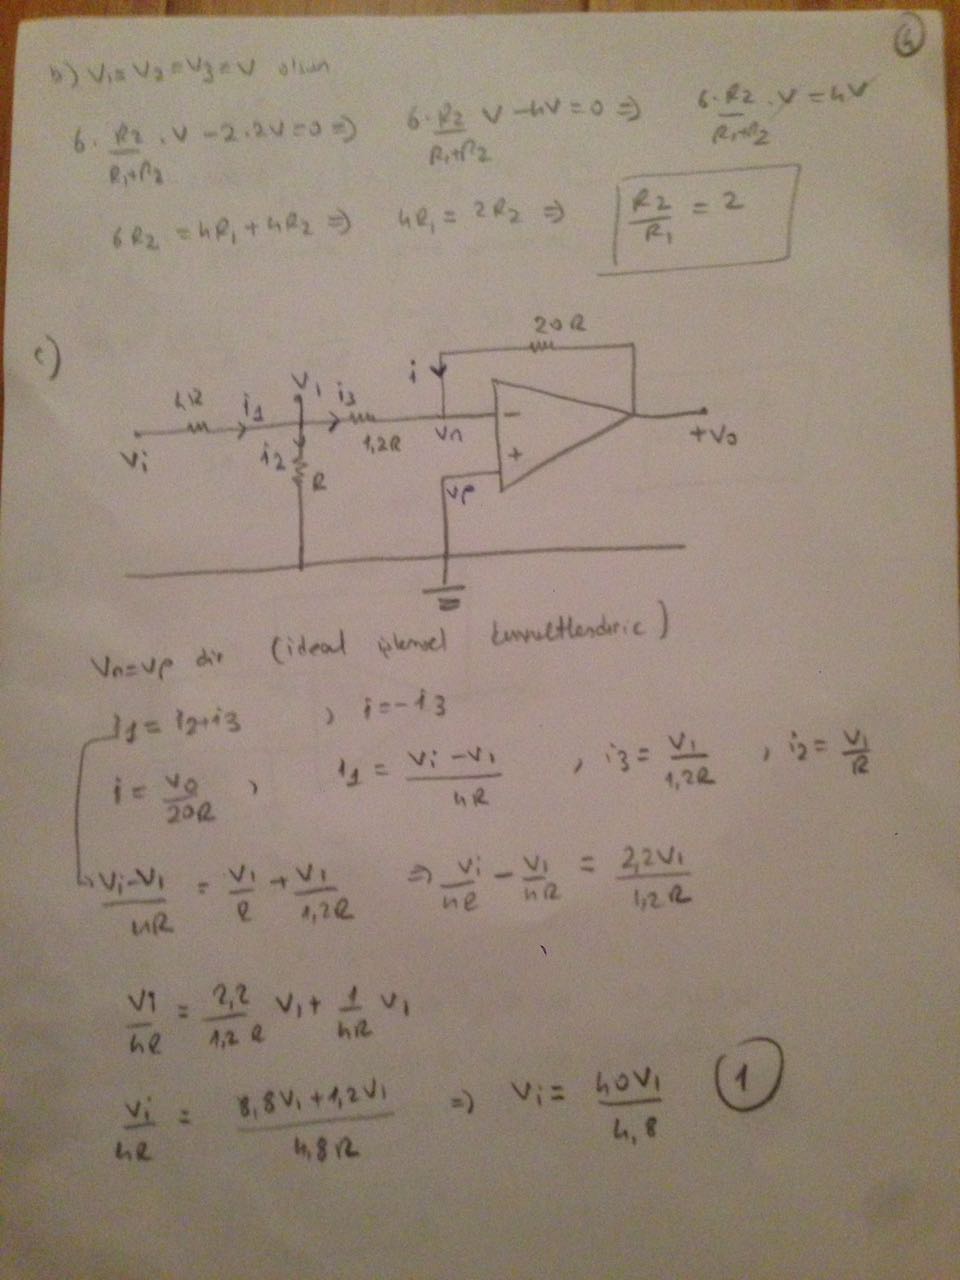 4
b) V1=V2=V3=V olsun
6. R2/(R1+R2) . V - 2.2V=0 => 6. R2/(R1+R2) V - 4V=0 => 6. R2/(R1+R2) . V = 4V
6R2 = 4R1+4R2 => 4R1 = 2R2 => R2/R1 = 2
c)
20R
i
4R i1 V1 i3
Vi i2 R 1,2R Vn - +V0
+
Vp
Vn=Vp dir (ideal işlemsel kuvvetlendirici)
i1 = i2+i3 , i=-i3
i = V0/20R , i1 = (Vi - V1)/4R , i3 = V1/1,2R , i2 = V1/R
(Vi-V1)/4R = V1/R + V1/1,2R => Vi/4R - V1/4R = 2,2V1/1,2R
Vi/4R = 2,2/1,2R V1 + 1/4R V1
Vi/4R = (8,8V1+1,2V1)/4,8R => Vi = 40V1/4,8 1